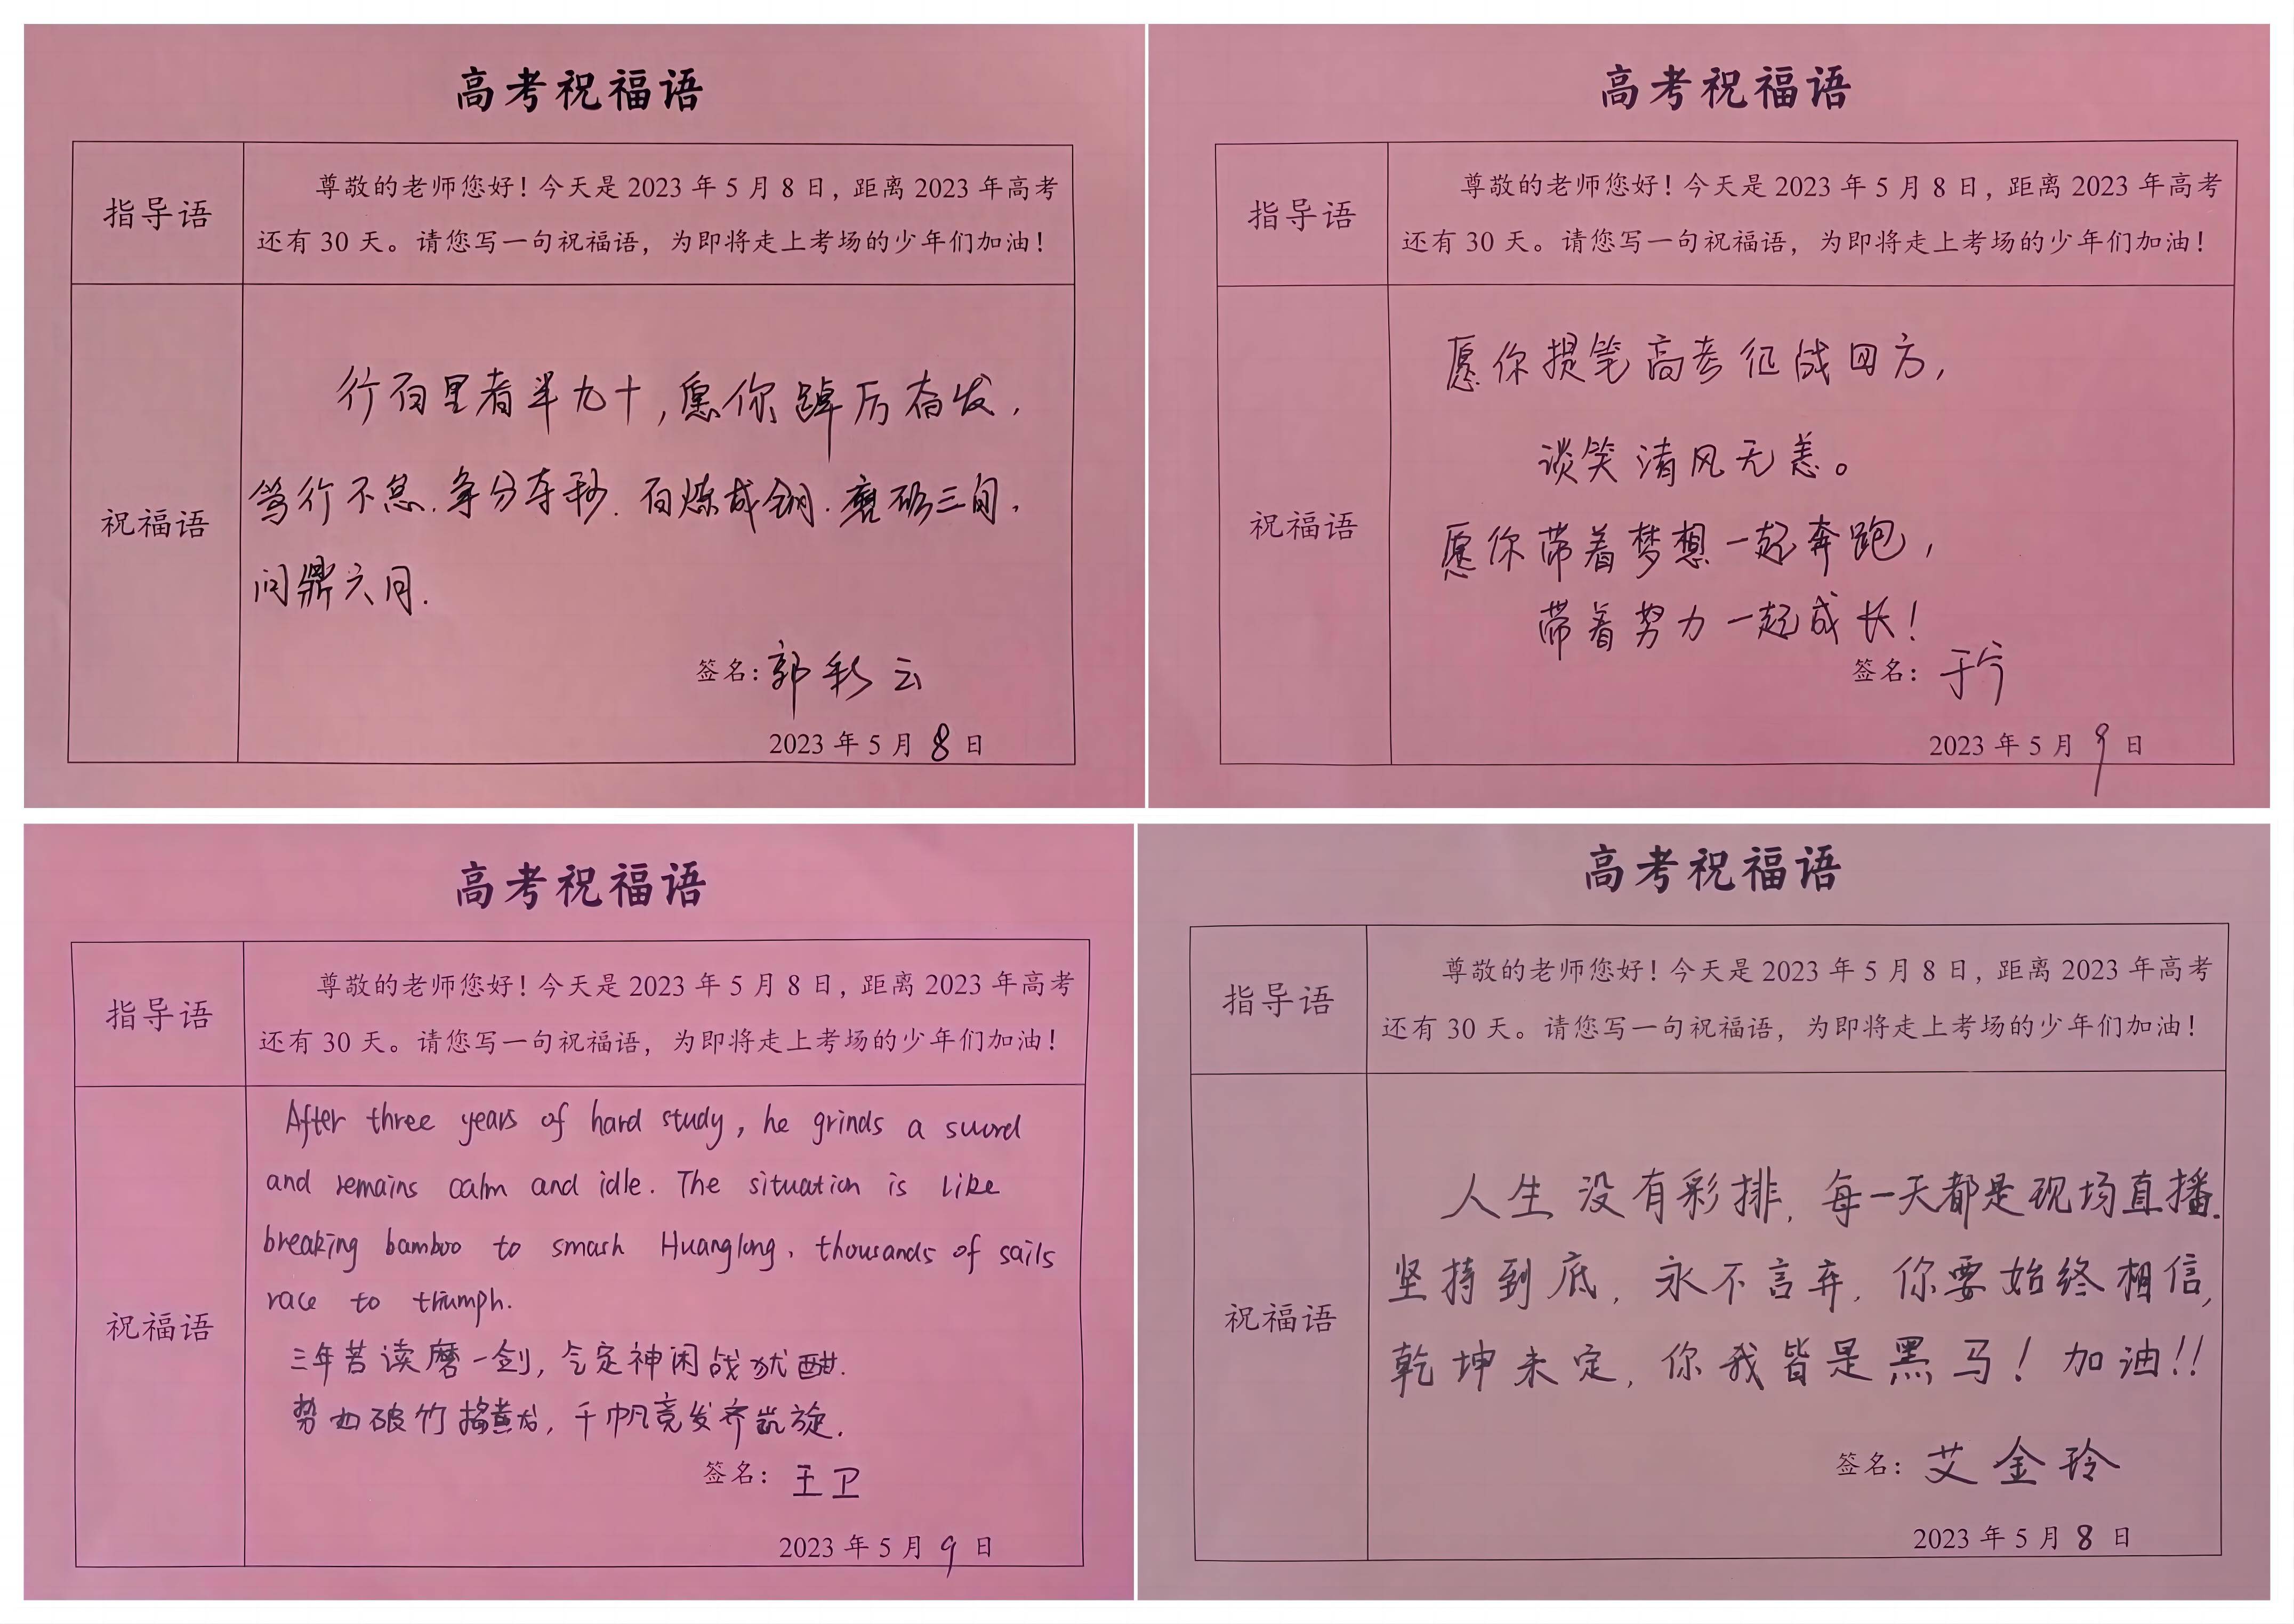 高考祝福语
指导语
尊敬的老师您好！今天是 2023 年 5 月 8 日，距离 2023 年高考
还有 30 天。请您写一句祝福语，为即将走上考场的少年们加油！
祝福语
行百里者半九十,愿你踔厉奋发,
笃行不怠.争分夺秒.百炼成钢.磨砺三旬,
问鼎六月.
签名：郭彩云
2023 年 5 月 8 日
高考祝福语
指导语
尊敬的老师您好！今天是 2023 年 5 月 8 日，距离 2023 年高考
还有 30 天。请您写一句祝福语，为即将走上考场的少年们加油！
祝福语
愿你提笔高考征战四方,
谈笑清风无恙。
愿你带着梦想一起奔跑,
带着努力一起成长!
签名：于
2023 年 5 月 9 日
高考祝福语
指导语
尊敬的老师您好！今天是 2023 年 5 月 8 日，距离 2023 年高考
还有 30 天。请您写一句祝福语，为即将走上考场的少年们加油！
祝福语
After three years of hard study, he grinds a sword
and remains calm and idle. The situation is like
breaking bamboo to smash Huanglong, thousands of sails
race to triumph.
三年苦读磨一剑,气定神闲战犹酣.
势如破竹捣黄龙,千帆竞发齐凯旋.
签名：王卫
2023 年 5 月 9 日
高考祝福语
指导语
尊敬的老师您好！今天是 2023 年 5 月 8 日，距离 2023 年高考
还有 30 天。请您写一句祝福语，为即将走上考场的少年们加油！
祝福语
人生没有彩排,每一天都是现场直播.
坚持到底,永不言弃,你要始终相信,
乾坤未定,你我皆是黑马!加油!!
签名：艾金玲
2023 年 5 月 8 日